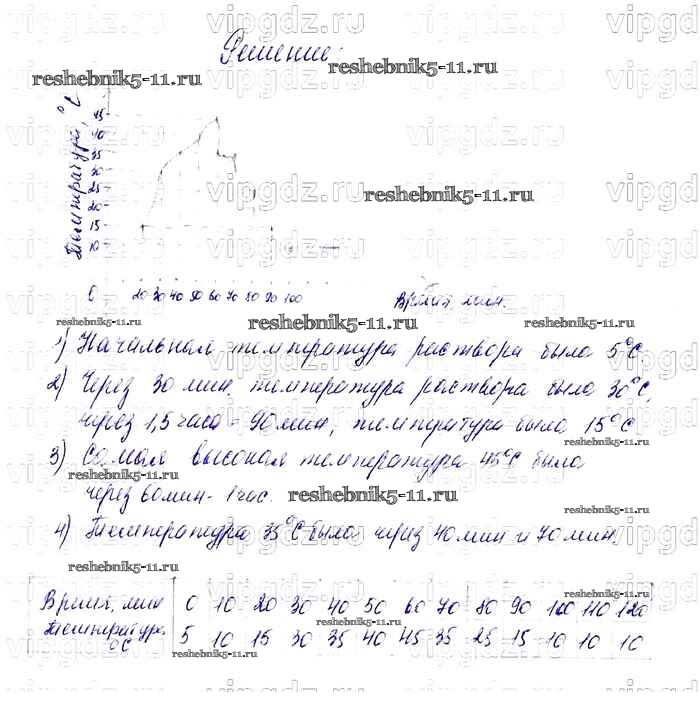 Решение.
Температура, °C
45
40
35
30
25
20
15
10
0 20 30 40 50 60 70 80 90 100
Время, мин.
1) Начальная температура раствора была 5°C
2) Через 30 мин. температура раствора была 30°C,
через 1,5 часа - 90 мин, температура была 15°C
3) Самая высокая температура 45°C была
через 60 мин - 1 час.
4) Температура 35°C была через 40 мин и 70 мин.
Время, мин 0 10 20 30 40 50 60 70 80 90 100 110 120
Температура °C 5 10 15 30 35 40 45 35 25 15 10 10 10
reshebnik5-11.ru
vipgdz.ru